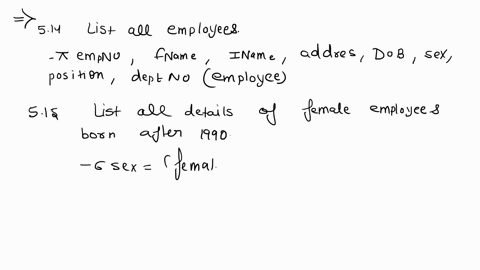 =>
5.14 List all employees.
-π empNO, fName, IName, addres, DOB, sex,
position, dept NO (employee)
5.15 List all details of female employees
born after 1990.
-σ sex = (femal